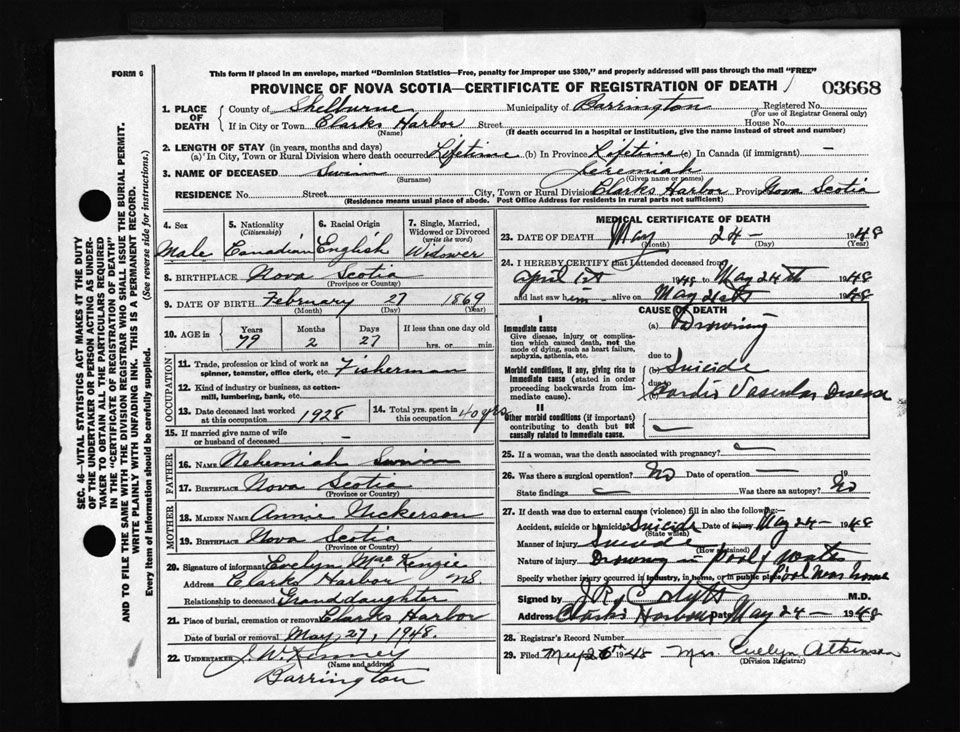 FORM 6
This form if placed in an envelope, marked "Dominion Statistics—Free, penalty for improper use $300," and properly addressed will pass through the mail "FREE"
PROVINCE OF NOVA SCOTIA—CERTIFICATE OF REGISTRATION OF DEATH
03668
1. PLACE OF DEATH
County of Shelburne Municipality of Barrington Registered No.
(For use of Registrar General only)
If in City or Town Clarks Harbor Street House No.
(Name) (If death occurred in a hospital or institution, give the name instead of street and number)
2. LENGTH OF STAY (in years, months and days)
(a) In City, Town or Rural Division where death occurred Lifetime (b) In Province Lifetime (c) In Canada (if immigrant) —
3. NAME OF DECEASED Swim Jeremiah
(Surname) (Given name or names)
RESIDENCE No. Street City, Town or Rural Division Clarks Harbor Province Nova Scotia
(Residence means usual place of abode. Post Office Address for residents in rural parts not sufficient)
4. Sex
Male
5. Nationality (Citizenship)
Canadian
6. Racial Origin
English
7. Single, Married, Widowed or Divorced (write the word)
Widower
8. BIRTHPLACE Nova Scotia
(Province or Country)
9. DATE OF BIRTH February 27 1869
(Month) (Day) (Year)
10. AGE in
Years Months Days If less than one day old
79 2 27 hrs. or min.
OCCUPATION
11. Trade, profession or kind of work as spinner, teamster, office clerk, etc. Fisherman
12. Kind of industry or business, as cotton-mill, lumbering, bank, etc.
13. Date deceased last worked at this occupation 1928
14. Total yrs. spent in this occupation 40 yrs
15. If married give name of wife or husband of deceased —
FATHER
16. NAME Nehemiah Swim
17. BIRTHPLACE Nova Scotia
(Province or Country)
MOTHER
18. MAIDEN NAME Annie Nickerson
19. BIRTHPLACE Nova Scotia
(Province or Country)
20. Signature of informant Evelyn MacKenzie
Address Clarks Harbor NS
Relationship to deceased Granddaughter
21. Place of burial, cremation or removal Clarks Harbor
Date of burial or removal May 27, 1948.
22. UNDERTAKER J. W. Kenney
(Name and address)
Barrington
MEDICAL CERTIFICATE OF DEATH
23. DATE OF DEATH May 24 — 1948
(Month) (Day) (Year)
24. I HEREBY CERTIFY that I attended deceased from
April 1st 1948 to May 24th 1948
and last saw him alive on May 21st 1948
CAUSE OF DEATH
I
Immediate cause
Give disease, injury or complication which caused death, not the mode of dying, such as heart failure, asphyxia, asthenia, etc.
(a) Drowning
due to
Morbid conditions, if any, giving rise to immediate cause (stated in order proceeding backwards from immediate cause).
(b) Suicide
due to
Cardio Vascular Disease
II
Other morbid conditions (if important) contributing to death but not causally related to immediate cause.
25. If a woman, was the death associated with pregnancy? —
26. Was there a surgical operation? No Date of operation — 19
State findings — Was there an autopsy? No
27. If death was due to external causes (violence) fill in also the following:—
Accident, suicide or homicide? Suicide Date of injury May 24 — 1948
(State which)
Manner of injury Suicide
(How sustained)
Nature of injury Drowning in pool of water
Specify whether injury occurred in industry, in home, or in public place Pool near home
Signed by M.D.
Address Clarks Harbour Date May 24 — 1948
28. Registrar's Record Number
29. Filed May 26th 1948 Mrs. Evelyn Atkinson
(Division Registrar)
SEC. 46—VITAL STATISTICS ACT MAKES IT THE DUTY
OF THE UNDERTAKER OR PERSON ACTING AS UNDER-
TAKER TO OBTAIN ALL THE PARTICULARS REQUIRED
IN THE "CERTIFICATE OF REGISTRATION OF DEATH"
AND TO FILE THE SAME WITH THE DIVISION REGISTRAR WHO SHALL ISSUE THE BURIAL PERMIT.
WRITE PLAINLY WITH UNFADING INK. THIS IS A PERMANENT RECORD.
Every item of information should be carefully supplied. (See reverse side for instructions.)